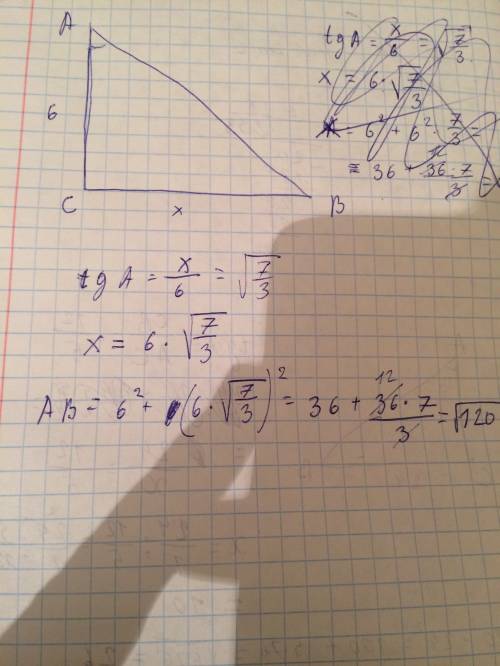 A
6
C
x
B
tg A = x/6 = √(7/3)
x = 6 · √(7/3)
= 6² + 6² · 7/3 =
= 36 + 36 · 7/3 =
12
tg A = x/6 = √(7/3)
x = 6 · √(7/3)
AB = 6² + (6 · √(7/3))² = 36 + 36 · 7/3 = √120
12